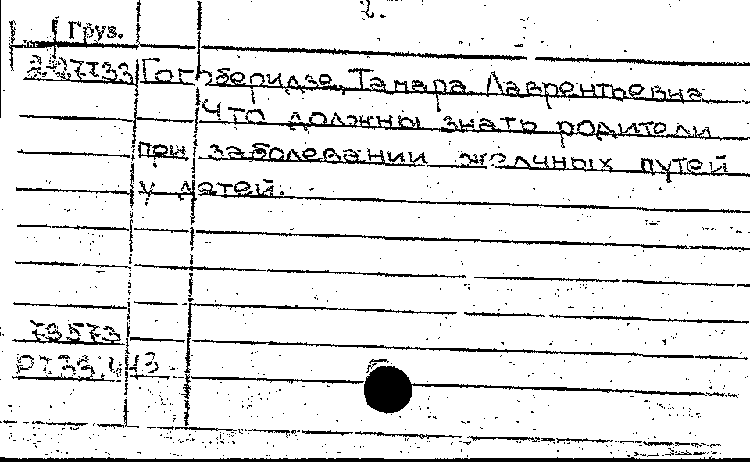 2.
Груз.
Гогоберидзе, Тамара Лаврентьевна
Что должны знать родители
при заболевании желчных путей
у детей.
73573